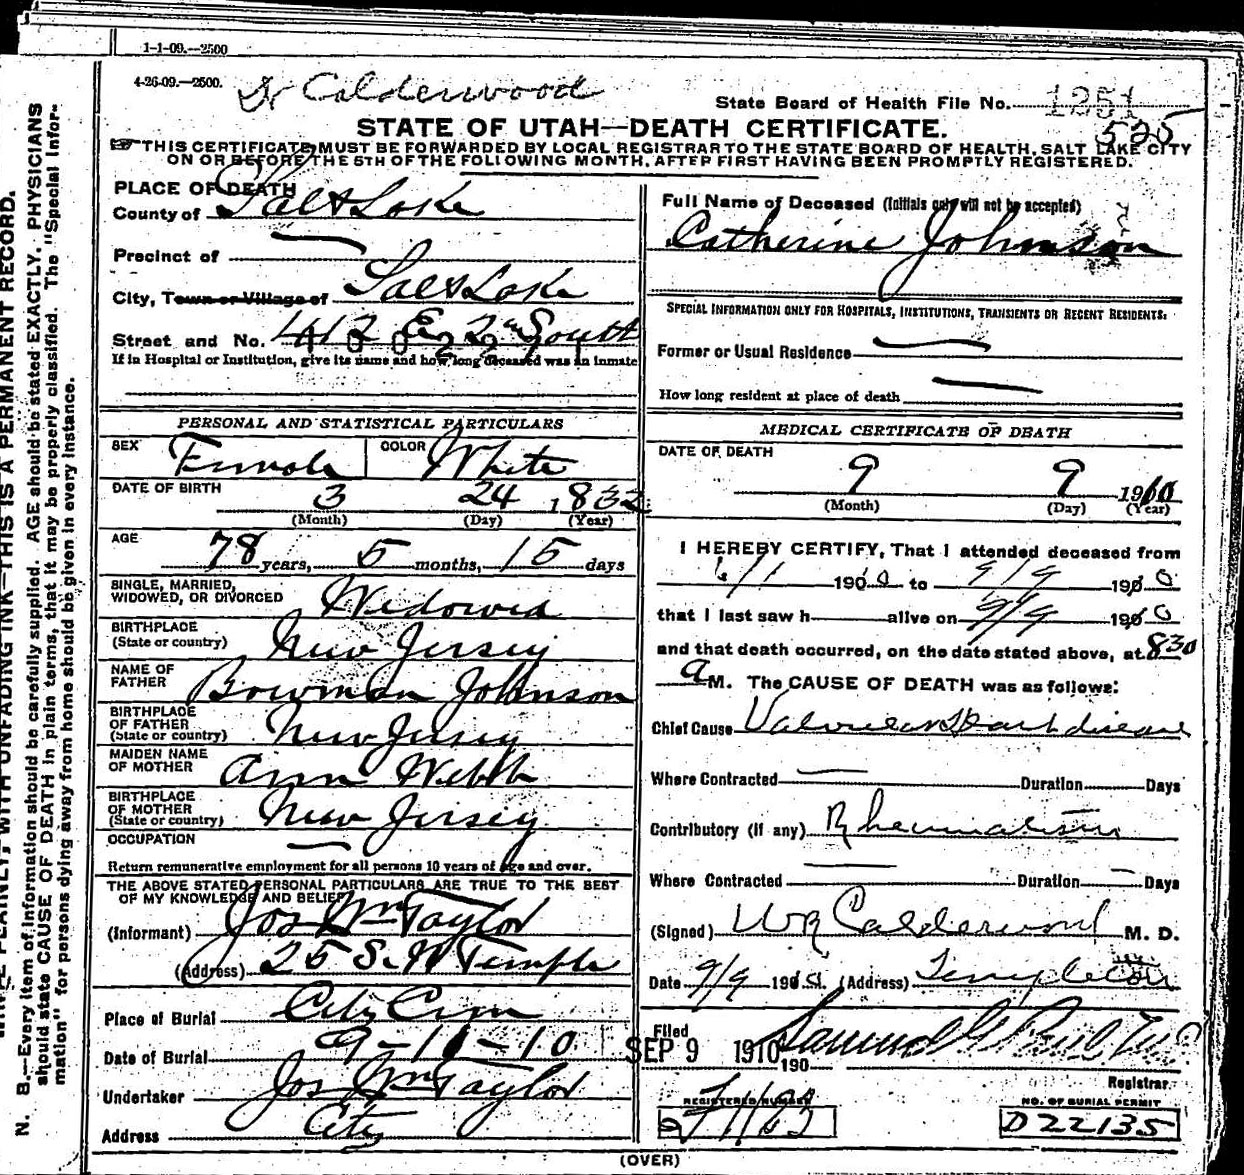 1-1-09.—2500
4-26-09.—2500.
Dr Calderwood
State Board of Health File No. 1251
525
STATE OF UTAH—DEATH CERTIFICATE.
THIS CERTIFICATE MUST BE FORWARDED BY LOCAL REGISTRAR TO THE STATE BOARD OF HEALTH, SALT LAKE CITY
ON OR BEFORE THE 5TH OF THE FOLLOWING MONTH, AFTER FIRST HAVING BEEN PROMPTLY REGISTERED.
PLACE OF DEATH
County of Salt Lake
Precinct of —
City, Town or Village of Salt Lake
Street and No. 412 E 2nd South
If in Hospital or Institution, give its name and how long deceased was in inmate
PERSONAL AND STATISTICAL PARTICULARS
SEX Female COLOR White
DATE OF BIRTH 3 24 1832
(Month) (Day) (Year)
AGE 78 years, 5 months, 15 days
SINGLE, MARRIED,
WIDOWED, OR DIVORCED Widowed
BIRTHPLACE
(State or country) New Jersey
NAME OF
FATHER Bowman Johnson
BIRTHPLACE
OF FATHER
(State or country) New Jersey
MAIDEN NAME
OF MOTHER Ann Webb
BIRTHPLACE
OF MOTHER
(State or country) New Jersey
OCCUPATION —
Return remunerative employment for all persons 10 years of age and over.
THE ABOVE STATED PERSONAL PARTICULARS ARE TRUE TO THE BEST
OF MY KNOWLEDGE AND BELIEF
(Informant) Jos Wm Taylor
(Address) 25 S. W Temple
Place of Burial City Cem
Date of Burial 9-11-10
Undertaker Jos Wm Taylor
Address City
Full Name of Deceased (Initials only will not be accepted)
Catherine Johnson
SPECIAL INFORMATION ONLY FOR HOSPITALS, INSTITUTIONS, TRANSIENTS OR RECENT RESIDENTS:
Former or Usual Residence —
How long resident at place of death —
MEDICAL CERTIFICATE OF DEATH
DATE OF DEATH
9 9 1910
(Month) (Day) (Year)
I HEREBY CERTIFY, That I attended deceased from
190 to 9/9 190
that I last saw h alive on 9/9 190
and that death occurred, on the date stated above, at 830
a M. The CAUSE OF DEATH was as follows:
Chief Cause Valvular Heart disease
Where Contracted — Duration Days
Contributory (if any) Rheumatism
Where Contracted — Duration — Days
(Signed) WR Calderwood M. D.
Date 9/9 190 (Address) Templeton
Filed
SEP 9 1910 190 Samuel G Paul
Registrar
REGISTERED NUMBER
NO. OF BURIAL PERMIT
D22135
(OVER)
WRITE PLAINLY, WITH UNFADING INK—THIS IS A PERMANENT RECORD.
N. B.—Every item of information should be carefully supplied. AGE should be stated EXACTLY. PHYSICIANS
should state CAUSE OF DEATH in plain terms, that it may be properly classified. The "Special Infor-
mation" for persons dying away from home should be given in every instance.